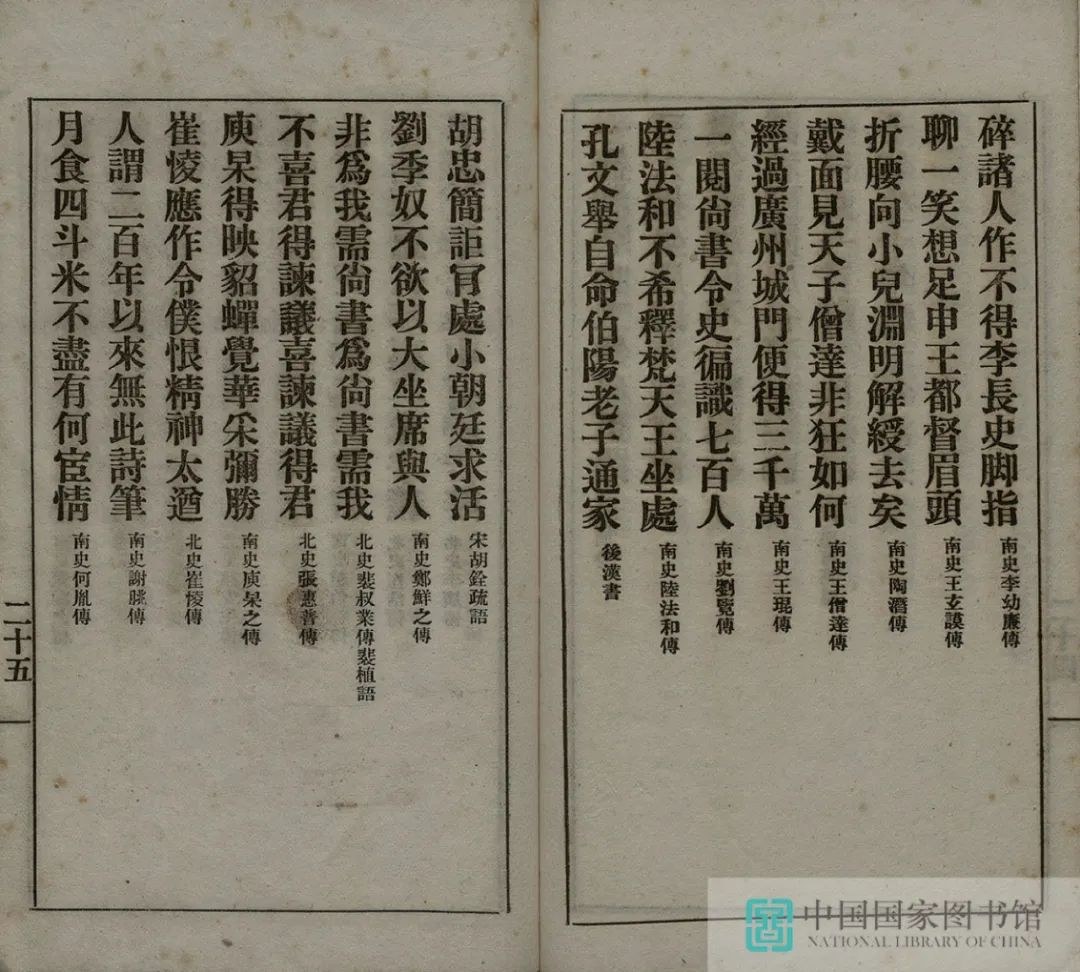 碎諸人作不得李長史脚指 南史李幼廉傳
聊一笑想足申王都督眉頭 南史王玄謨傳
折腰向小兒淵明解綬去矣 南史陶潛傳
戴面見天子僧達非狂如何 南史王僧達傳
經過廣州城門便得三千萬 南史王琨傳
一閱尙書令史徧識七百人 南史劉覽傳
陸法和不希釋梵天王坐處 南史陸法和傳
孔文舉自命伯陽老子通家 後漢書
胡忠簡詎肎處小朝廷求活 宋胡銓疏語
劉季奴不欲以大坐席與人 南史鄭鮮之傳
非爲我需尙書爲尙書需我 北史裴叔業傳裴植語
不喜君得諫議喜諫議得君 北史張惠普傳
庾杲得映貂蟬覺華釆彌勝 南史庾杲之傳
崔㥄應作令僕恨精神太遒 北史崔㥄傳
人謂二百年以來無此詩筆 南史謝朓傳
月食四斗米不盡有何宦情 南史何胤傳
二十五
中国国家图书馆
NATIONAL LIBRARY OF CHINA